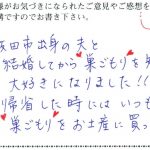 様がお気づきになられたご意見やご感想を
構ですのでお書き下さい。
田市出身の夫と
結婚してから巣ごもりを
大好きになりました!!
帰省した時にはいつも
巣ごもりをお土産に買っ